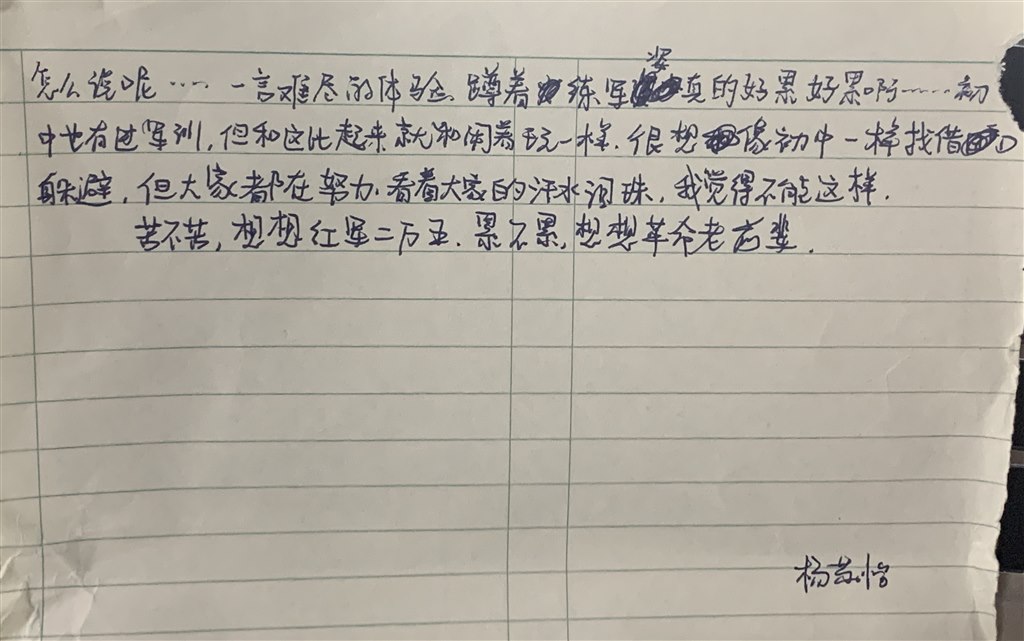 怎么说呢…… 一言难尽的体验. 蹲着练军姿真的好累好累啊……初
中也有过军训, 但和这比起来就和闹着玩一样. 很想像初中一样找借口
躲避, 但大家都在努力. 看着大家的汗水泪珠, 我觉得不能这样.
苦不苦, 想想红军二万五. 累不累, 想想革命老前辈.
杨苏怡